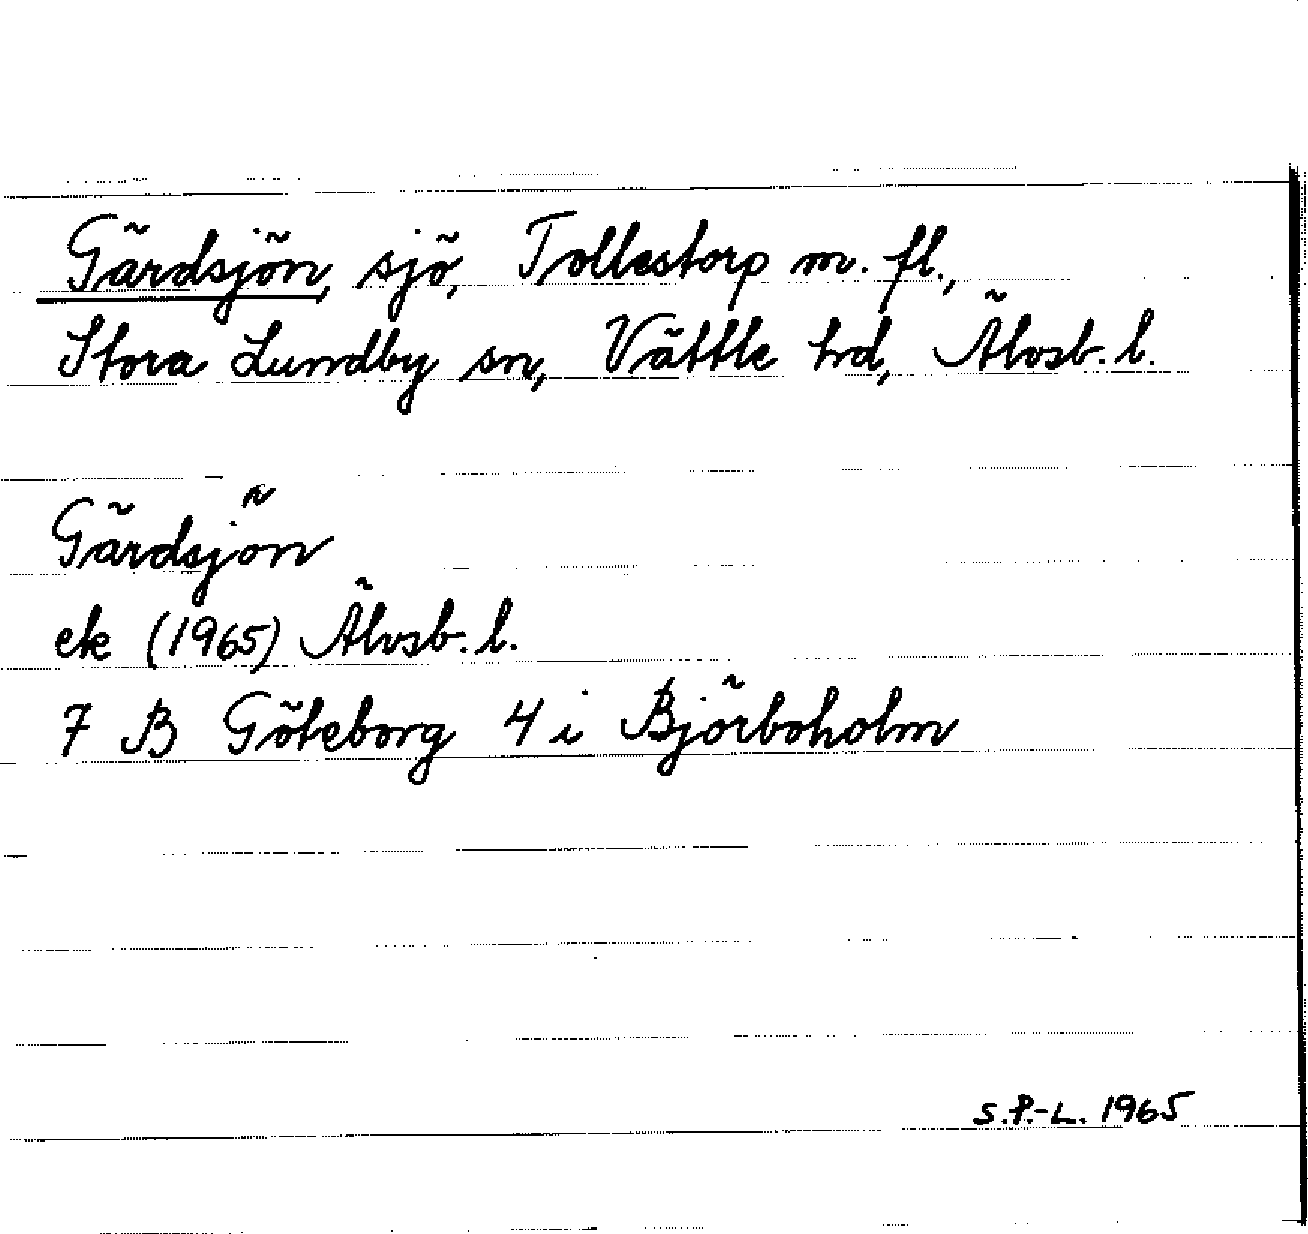 Gärdsjön, sjö, Tollestorp m. fl.,
Stora Lundby sn, Vättle hd, Älvsb. l.
Gärdsjön
ek (1965) Älvsb. l.
7 B Göteborg 4 i Björboholm
S.P.-L. 1965